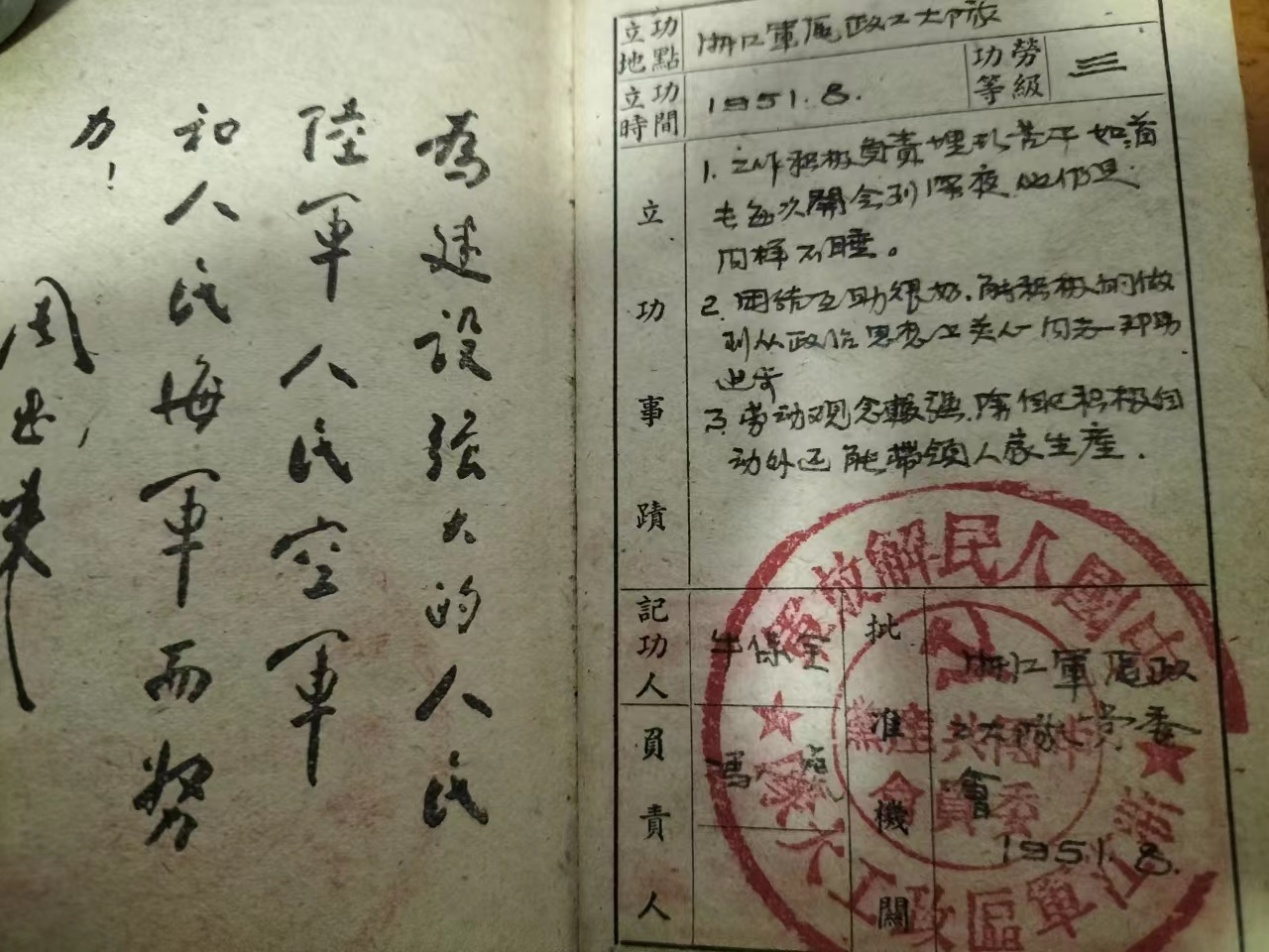 為建设强大的人民
陸軍人民空軍
和人民海軍而努
力!
周恩来
立功地點 浙江軍區政工大隊
功勞等級 三
立功時間 1951.8.
立功事蹟
1. 工作积极負責埋头苦干如首
長每次開会到深夜他仍是
同样不睡。
2. 团结互助很好.能积极的做
到从政治思想上关心同志一邦助
进步
3. 劳动观念較强.除自己积极劳
动外还能帶領人家生産.
記功人員責人
牛保全
馮
批准機關
浙江軍區政
工大隊党委
會
1951.8.
中國人民解放軍
浙江軍區政工大隊
中國共產黨
委員會